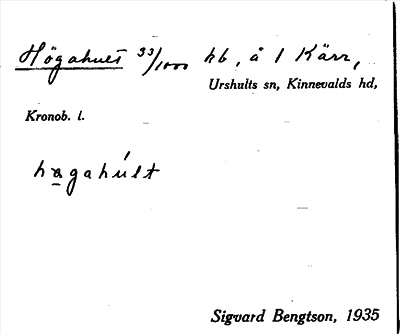 Högahult 33/1000 hb, å 1 Kärr,
Urshults sn, Kinnevalds hd,
Kronob. l.
hagahúlt
Sigvard Bengtson, 1935